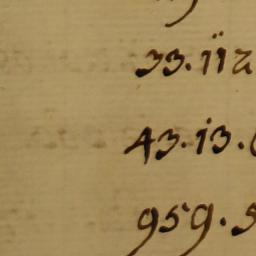 33.11
43.13.
959.5